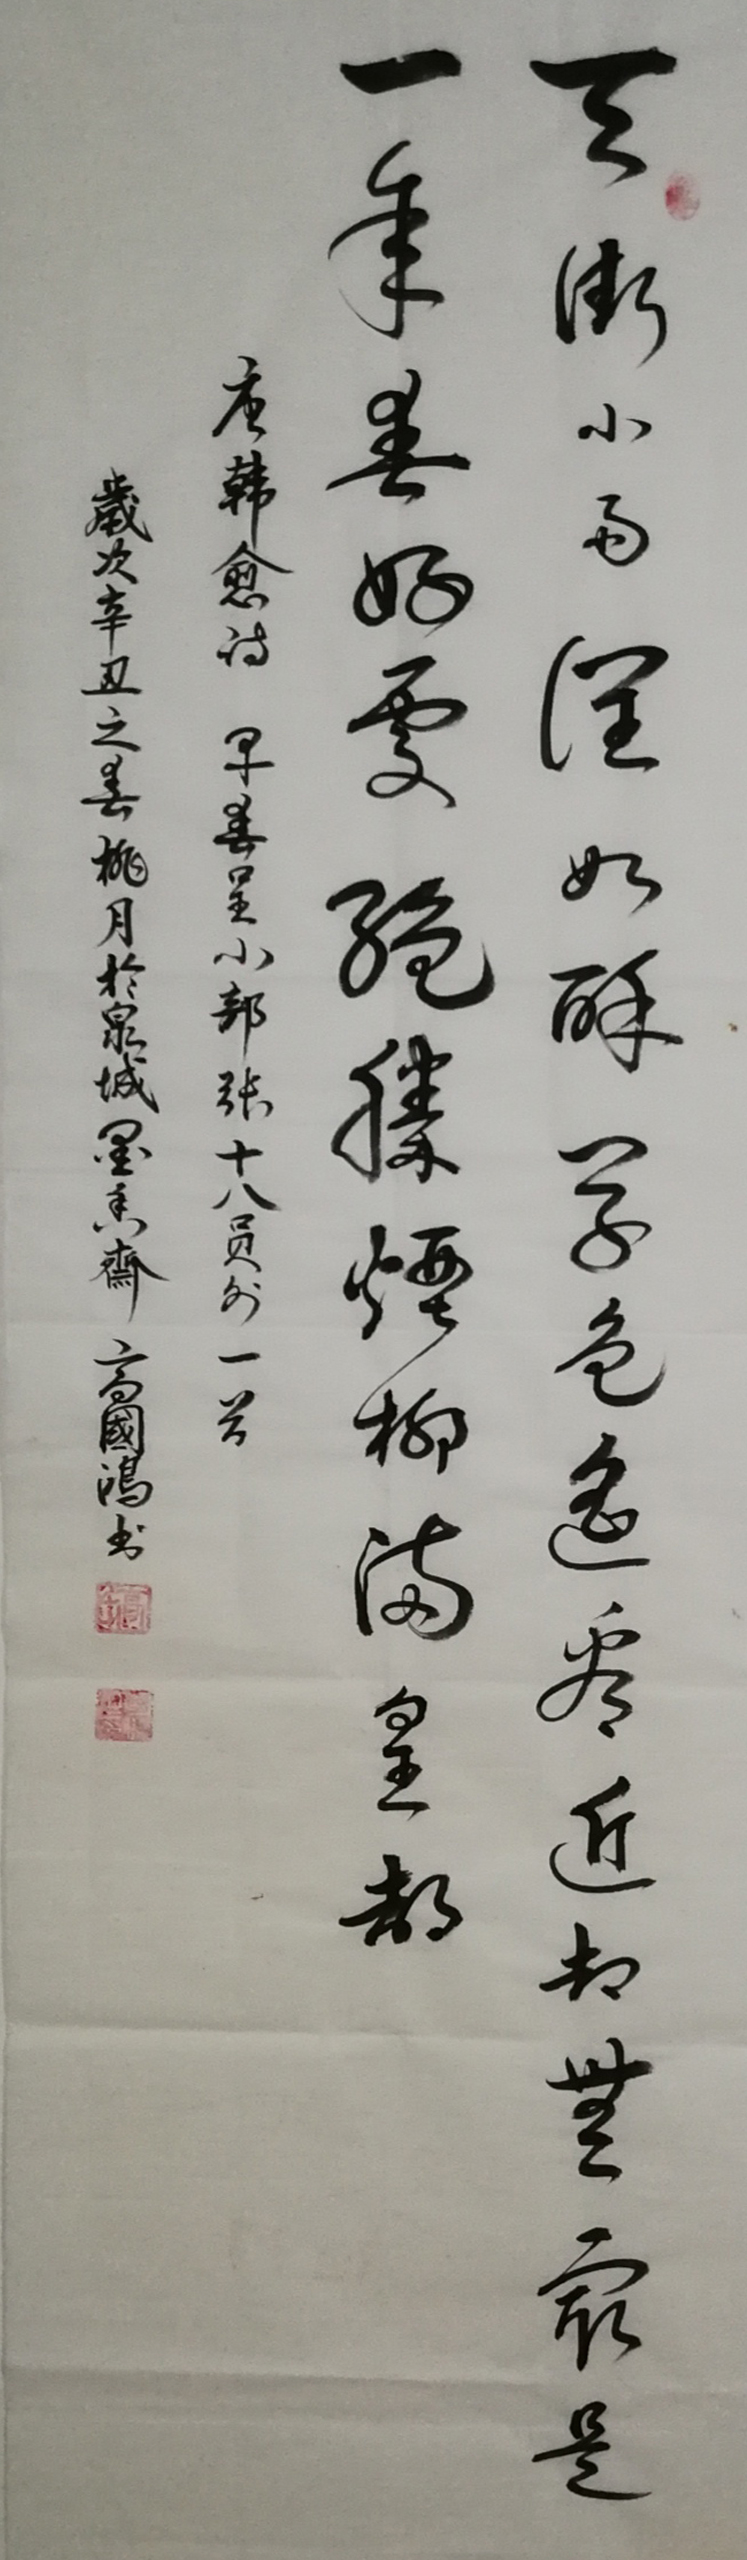 天街小雨润如酥草色遥看近却無最是
一年春好处絶勝煙柳满皇都
唐韩愈诗 早春呈小部张十八员外一首
歲次辛丑之春桃月於泉城墨香齋 高國鴻书